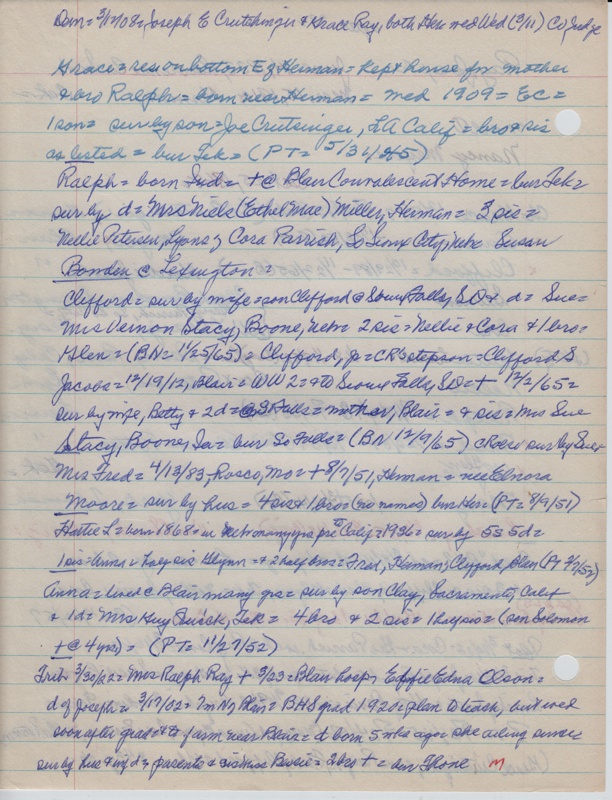 Dem = 3/12/08 = Joseph E Crutsinger & Grace Ray, both Her med Wed (3/11) Co Judge
Grace = res on bottom E of Herman = Kept house for mother
& bro Ralph = born near Herman = med 1909 = EC =
1 son = sur by son = Joe Crutsinger, LA Calif = bro & sis
as listed = bur Tek = (PT = 5/31/45)
Ralph = born Ind = + @ Blair Convalescent Home = bur Tek =
sur by d = Mrs Niels (Ethel Mae) Miller, Herman = 3 sis =
Nellie Petersen, Lyons; Cora Parrish, So Sioux City, Nebr Susan
Bowden @ Lexington =
Clifford = sur by wife = son Clifford @ Sioux Falls, SD & d = Sue =
Mrs Vernon Stacy, Boone, Nebr 2 sis = Nellie & Cora & 1 bro =
Glen = (BN = 11/25/65) = Clifford, Jr = CR's stepson = Clifford S
Jacobs = 12/19/12, Blair = WW 2 = to Sioux Falls, SD = + 12/2/65 =
sur by wife, Betty & 2 d = @ S Falls = mother, Blair = & sis = Mrs Sue
Stacy, Boone, Ia = bur So Falls = (BN 12/9/65) CR also sur by Sue
Mrs Fred = 4/13/83, Rosco, Mo = + 8/7/51, Herman = nee Elnora
Moore = sur by hus = 4 sis & 1 bro = (no names) bur Her = (PT = 8/9/51)
Hattie L = born 1868 = in Nebr many yrs pre to Calif = 1936 = sur by 5s 5d =
1 sis = Anna & half sis Glynn = & 2 half bros = Fred, Herman; Clifford, Blair (PT 2/7/52)
Anna = lived @ Blair many yrs = sur by son Clay, Sacramento, Calif
& 1 d = Mrs Guy Quick, Tek = 4 bro & 2 sis = 1 half sis = (son Solomon
+ @ 4 yrs) = (PT = 11/27/52)
Trib 3/30/22 = Mrs Ralph Ray + 3/23 = Blair hosp = Effie Edna Olson =
d of Joseph = 3/17/02 = 7m N of Blair = BHS grad 1920 = plan to teach, but wed
soon after grad & to farm near Blair = d born 5 mts ago = she ailing since
sur by hus & inf d, parents & sis Miss Bessie = 2 bro + = bur Fhone M